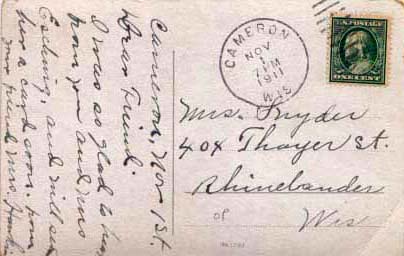 Cameron, Nov 1st.
Dear Friend.
I was so glad to hear
from you and Mrs
and will send
her a card soon. from
your friend Mrs
CAMERON
NOV
1
7 M
1911
WIS
U.S. POSTAGE
ONE CENT
Mrs. Snyder
404 Thayer St.
Rhinelander
Wis